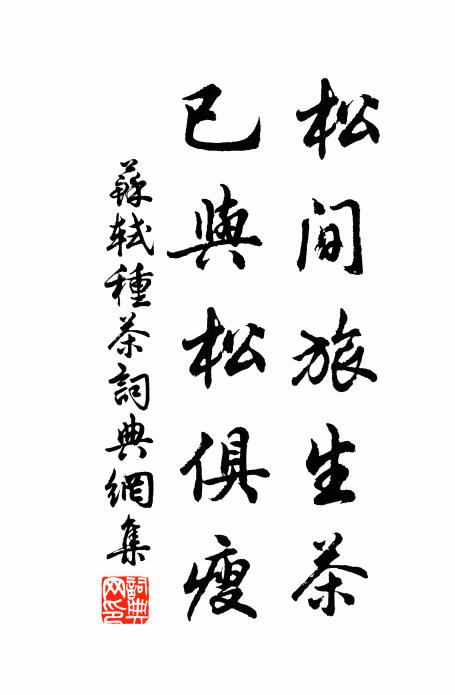 松間旅生茶
已與松俱瘦
蘇軾種茶詞典網集
詞典網印